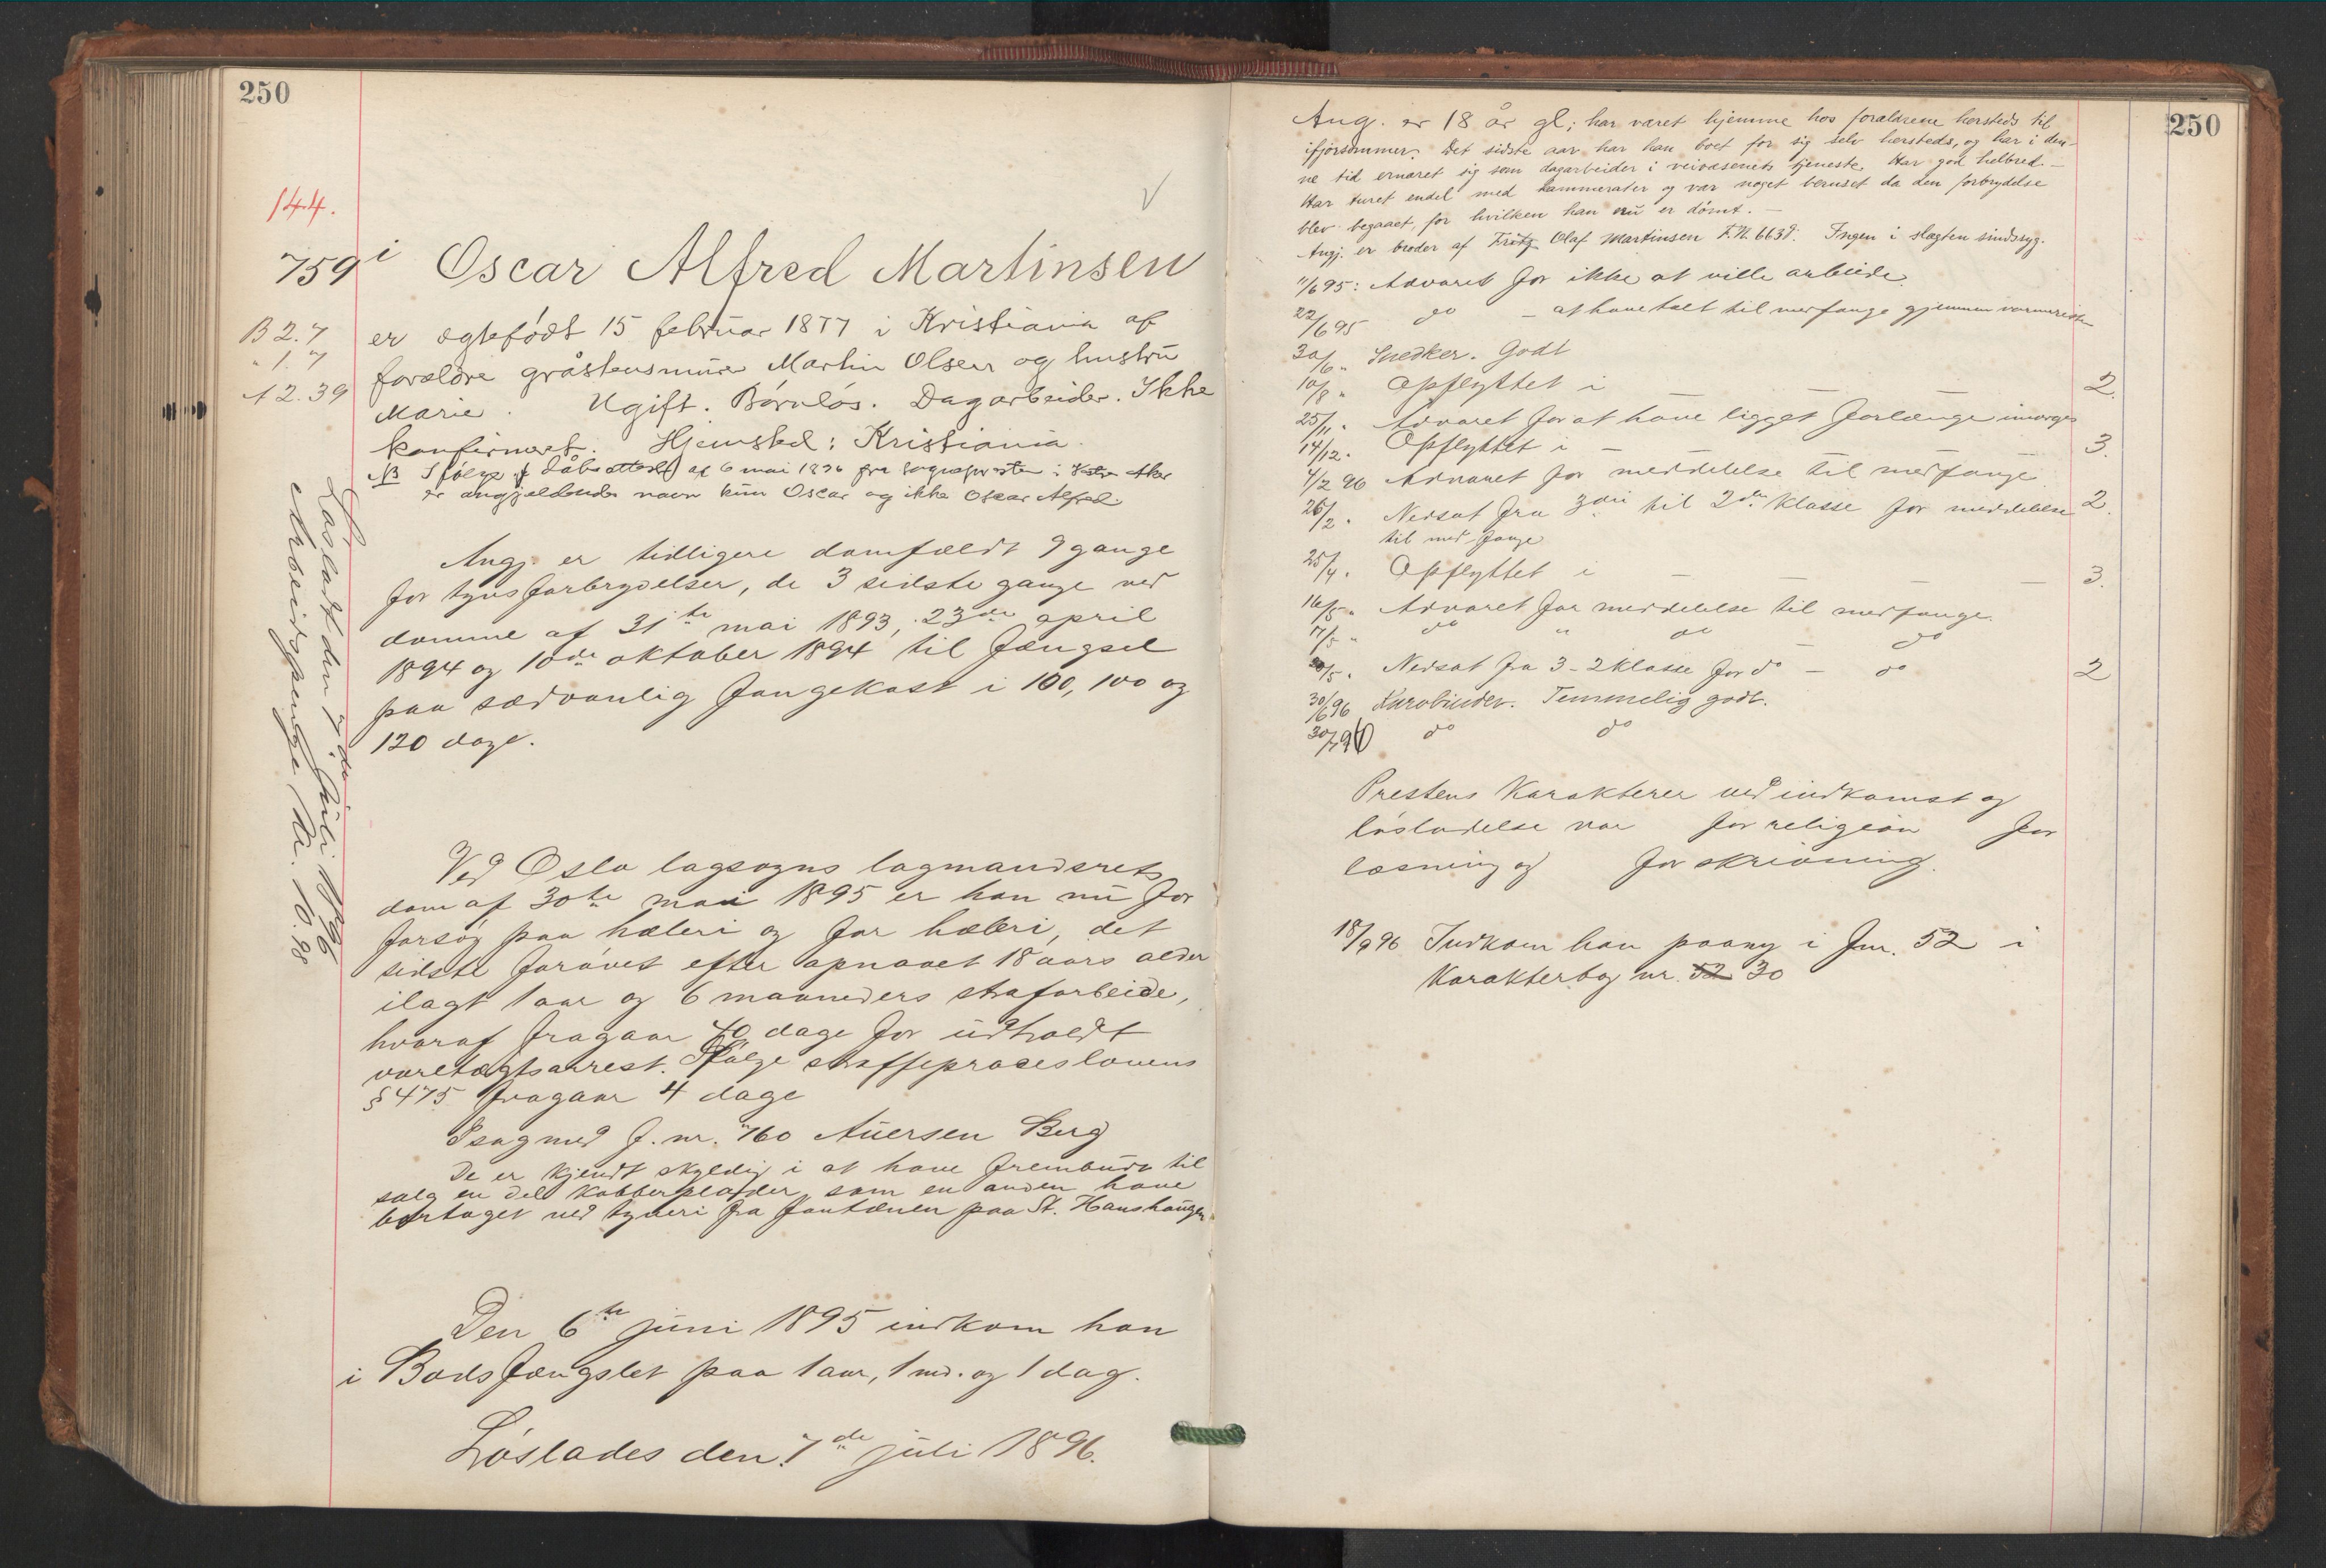 250
144.
759 i Oscar Alfred Martinsen
B 2.7
" 1.7
A 2.39
er ægtefødt 15 februar 1877 i Kristiania af
forældre gråstensmürer Martin Olsen og hustrü
Marie . Ugift. Børnløs. Dagarbeider. Ikke
konfirmeret. Hjemsted: Kristiania.
NB Ifølge dåbsattest af 6 mai 1896 fra sognepresten i Vestre Aker
er angjældendes navn kün Oscar og ikke Oscar Alfred.
Angj. er tidligere domfældt 9 gange
for tyvsforbrydelser, de 3 sidste gange ved
domme af 31te mai 1893, 23de april
1894 og 10de oktober 1894 til fængsel
paa sædvanlig fangekost i 100, 100 og
120 dage.
Ved Oslo lagsogns lagmandsrets
dom af 30te mai 1895 er han nü for
forsøg paa hæleri og for hæleri, det
sidste forøvet efter opnaaet 18 aars alder
ilagt 1 aar og 6 maaneders strafarbeide,
hvoraf fragaar 40 dage for üdholdt
varetægtsarrest. Ifølge straffeproceslovens
§ 475 fragaar 4 dage
I sag med f. nr. 760 Auersen Berg
De er kjendt skyldig i at have frembüdt til
salg en del kobberplader som en anden havde
borttaget ved tyveri fra fontænen paa St. Hanshaugen.
Den 6te jüni 1895 indkom han
i Bodsfængslet paa 1 aar, 1 md. og 1 dag.
Løslades den 7de jüli 1896.
Løsladt den 7de jüli 1896
Arbeidspenge Kr. 10.98
250
Ang. er 18 år gl; har været hjemme hos forældrene hersteds til
ifjorsommer. Det sidste aar har han boet for sig selv hersteds, og har i den-
ne tid ernæret sig som dagarbeider i veivæsenets tjeneste. Har god helbred –
Har turet endel med kammerater og var noget beruset da den forbrydelse
blev begaaet, for hvilken han nü er dømt. –
Angj. er broder af Fritz Olaf Martinsen F.N. 663 d. Ingen i slægten sindssyg.
11/6 95: Advaret for ikke at ville arbeide.
22/6 95 do – at have talt til medfange gjennem varmeristen
30/6 " Snedker. Godt
10/8 " Opflyttet i – – – 2.
25/11 " Advaret for at have ligget forlænge imorges
14/12 " Opflyttet i – 3.
4/2 96 Advaret for meddelelse til medfange
26/2 " Nedsat fra 3die til 2den klasse for meddelelse 2.
til med fange
25/4 " Opflyttet i – – – – 3.
16/5 " Advaret for meddelelse til medfange.
17/5 " do " do – do
20/5 " Nedsat fra 3–2 klasse for do – do 2
30/6 96 Kurvbinder. Temmelig godt.
30/7 96 do do
Prestens Karakterer ved indkomst og
løsladelse var for religion for
læsning og for skrivning.
18/9 96 Indkom han paany i fnr. 52 i
Karakterbog nr. 52 30